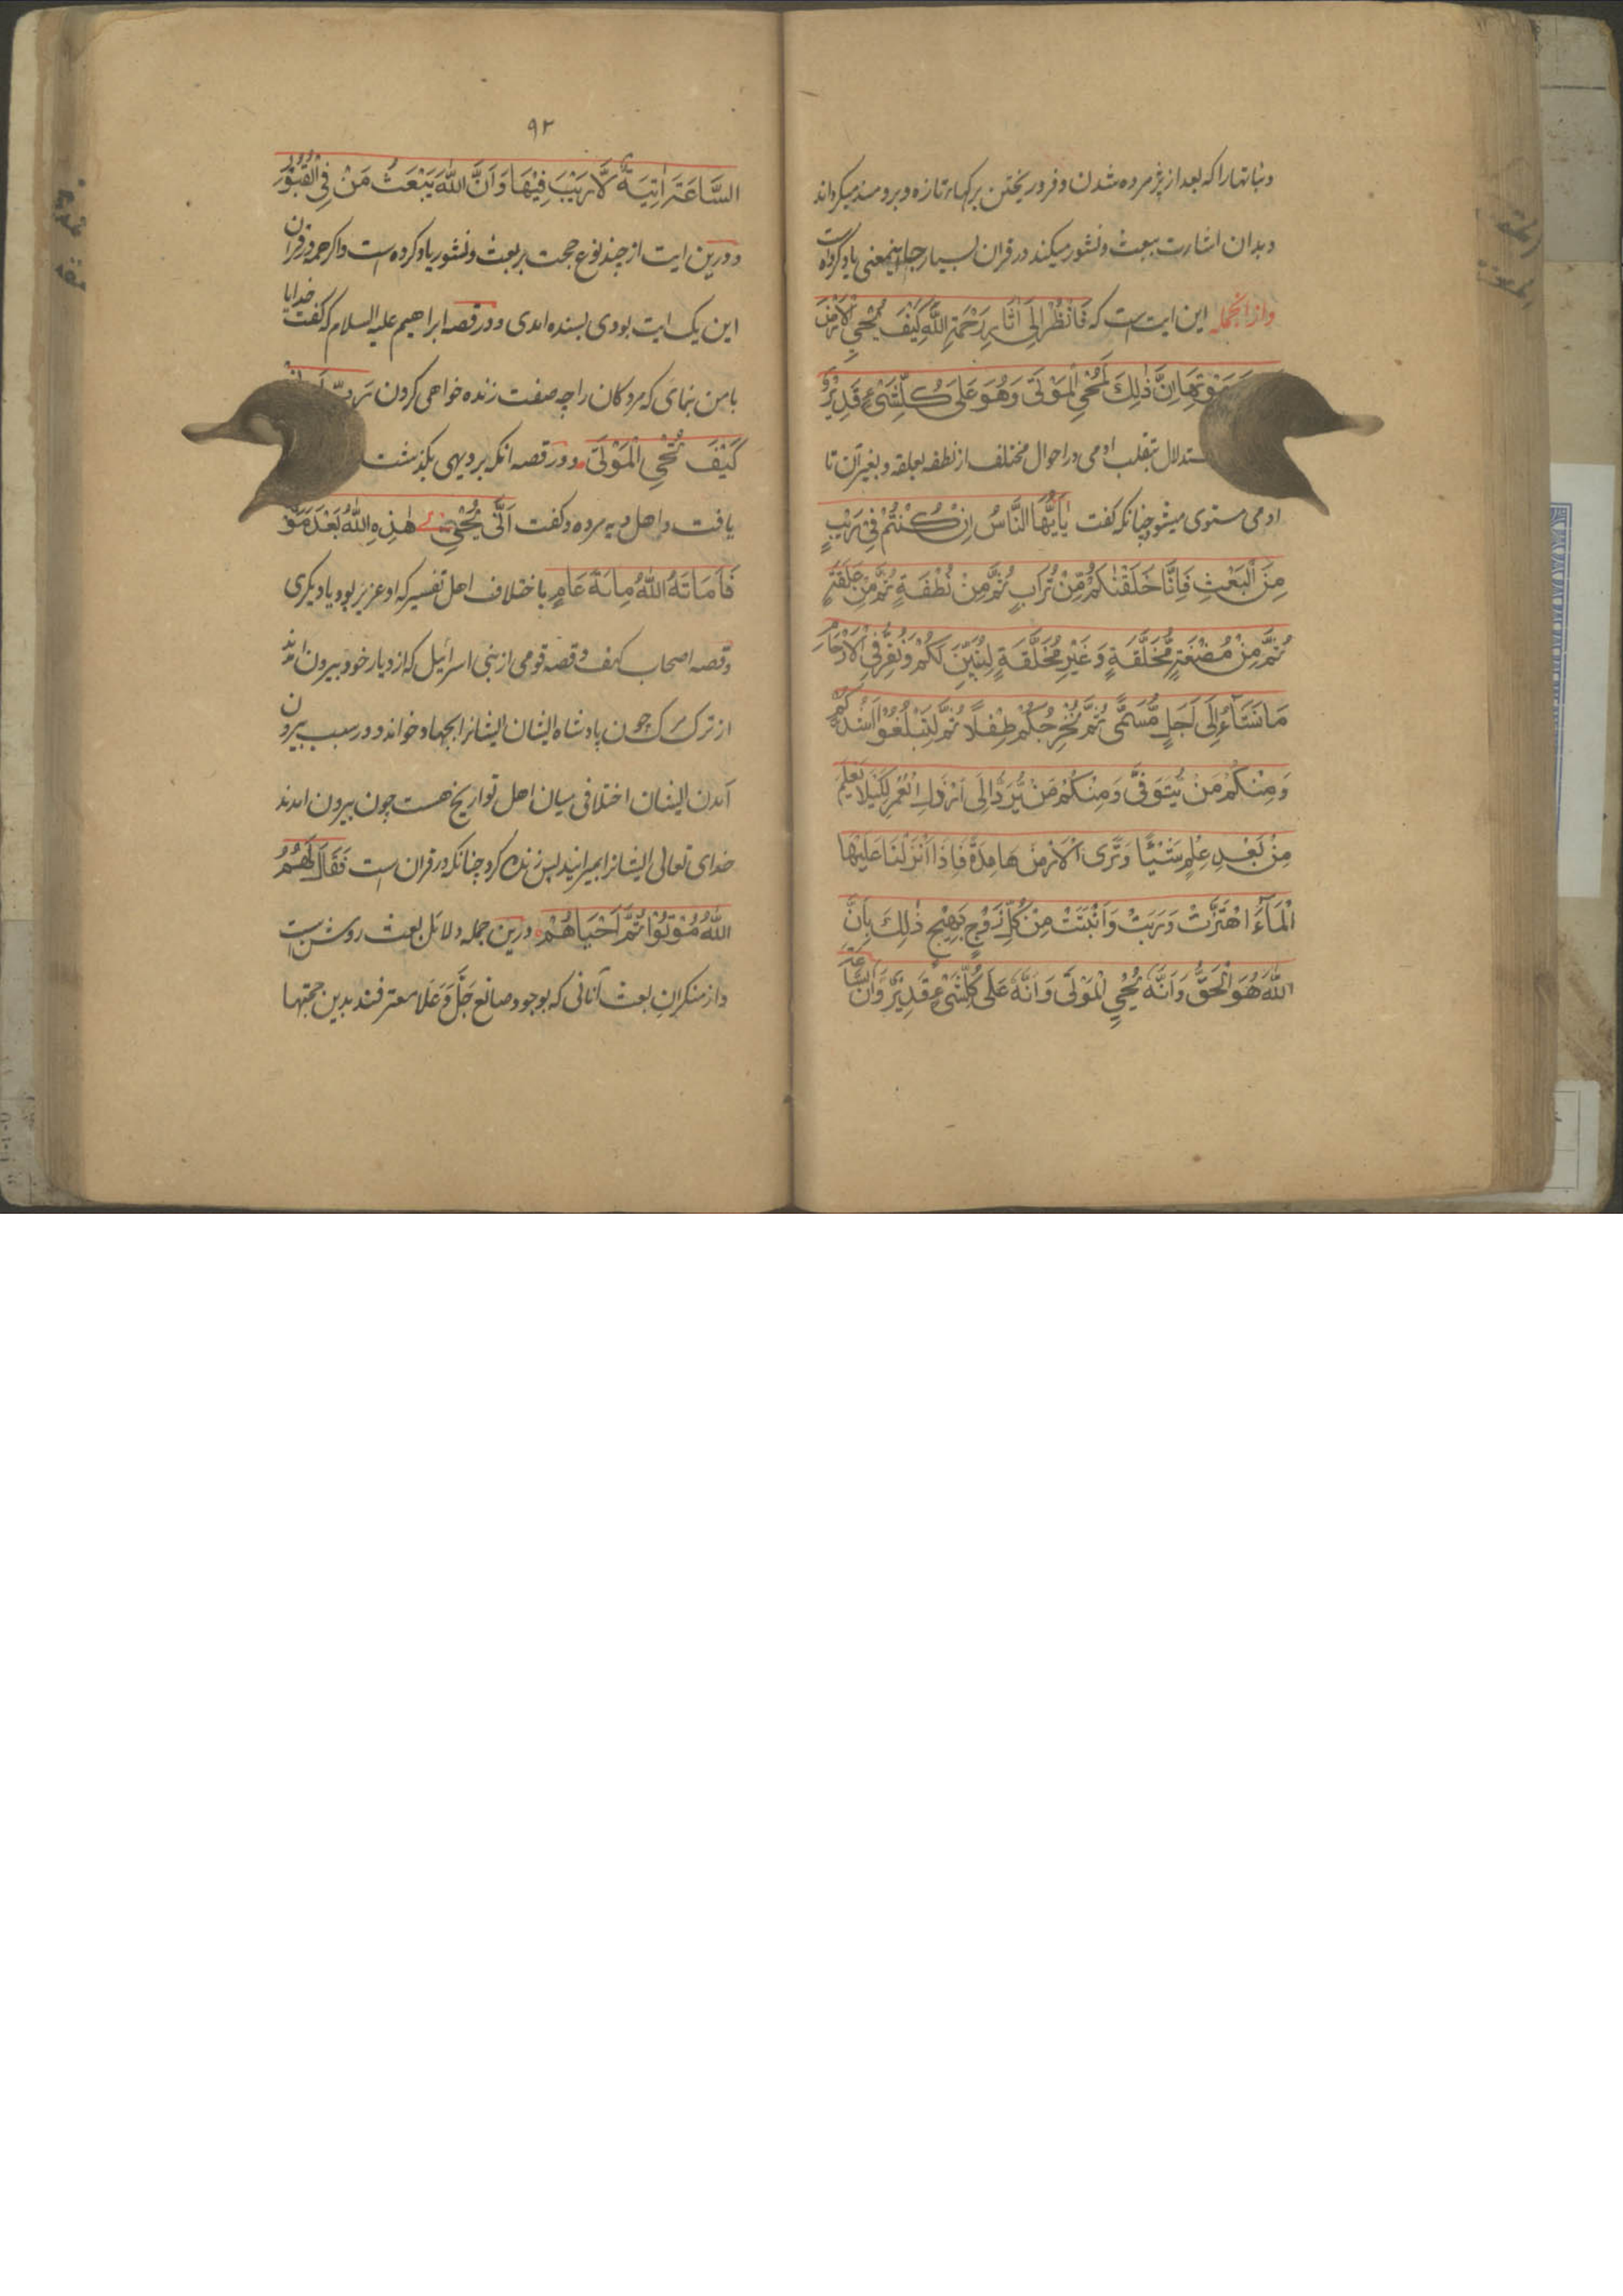 ونباتها را که بعد از پژمرده شدن و فرو ریختن برکها تازه و برومند میکرداند
وبدان اشارت ببعث ونشور میکند در قران بسیار جا اینمعنی یاد کرده است
واز انجمله این ایت ست که فَانْظُرْ اِلٰی اٰثَارِ رَحْمَةِ اللّٰهِ کَیْفَ یُحْیِ الْاَرْضَ
مَوْتِهَا اِنَّ ذٰلِكَ لَمُحْیِ الْمَوْتٰی وَهُوَ عَلٰی کُلِّ شَیْءٍ قَدِیْرٌ وَ
ستدلال بتقلب ادمی در احوال مختلف از نطفه بعلقه و بغیر آن تا
ادمی مستوی میشود چنانکه کفت یٰاَیُّهَا النَّاسُ اِنْ کُنْتُمْ فِیْ رَیْبٍ
مِنَ الْبَعْثِ فَاِنَّا خَلَقْنٰکُمْ مِّنْ تُرَابٍ ثُمَّ مِنْ نُطْفَةٍ ثُمَّ مِنْ عَلَقَةٍ
ثُمَّ مِنْ مُضْغَةٍ مُّخَلَّقَةٍ وَغَیْرِ مُخَلَّقَةٍ لِنُبَیِّنَ لَکُمْ وَنُقِرُّ فِی الْاَرْحَامِ
مَا نَشَآءُ اِلٰی اَجَلٍ مُّسَمًّی ثُمَّ نُخْرِجُکُمْ طِفْلًا ثُمَّ لِتَبْلُغُوْا اَشُدَّکُمْ
وَمِنْکُمْ مَنْ یُّتَوَفّٰی وَمِنْکُمْ مَنْ یُّرَدُّ اِلٰی اَرْذَلِ الْعُمُرِ لِکَیْلَا یَعْلَمَ
مِنْ بَعْدِ عِلْمٍ شَیْئًا وَتَرَی الْاَرْضَ هَامِدَةً فَاِذَا اَنْزَلْنَا عَلَیْهَا
الْمَآءَ اهْتَزَّتْ وَرَبَتْ وَاَنْبَتَتْ مِنْ کُلِّ زَوْجٍ بَهِیْجٍ ذٰلِكَ بِاَنَّ
اللّٰهَ هُوَ الْحَقُّ وَاَنَّهٗ یُحْیِ الْمَوْتٰی وَاَنَّهٗ عَلٰی کُلِّ شَیْءٍ قَدِیْرٌ وَاَنَّ السَّاعَةَ
۹۲
السَّاعَةَ اٰتِیَةٌ لَّا رَیْبَ فِیْهَا وَاَنَّ اللّٰهَ یَبْعَثُ مَنْ فِی الْقُبُوْرِ
ودرین ایت از چند نوع حجت بر بعث ونشور یاد کرده است واکر همه در قران
این یک ایت بودی بسنده امدی ودر قصه ابراهیم علیه السلام که کفت خدایا
با من بنمای که مردکان را چه صفت زنده خواهی کردن رَبِّ اَرِنِیْ
کَیْفَ تُحْیِ الْمَوْتٰی ودر قصه انکه بر دیهی بکذشت
یافت واهل دیه مرده وکفت اَنّٰی یُحْیِیْ هٰذِهِ اللّٰهُ بَعْدَ مَوْ
فَاَمَاتَهُ اللّٰهُ مِائَةَ عَامٍ باختلاف اهل تفسیر که او عزیر بود یا دیکری
وقصه اصحاب کهف وقصه قومی از بنی اسرائیل که از دیار خود بیرون امدند
از ترک مرک چون پادشاه ایشان ایشانرا بجهاد خواند ودر سبب بیرون
آمدن ایشان اختلافی میان اهل تواریخ هست چون بیرون امدند
خدای تعالی ایشانرا بمیرانید پس زنده کرد چنانکه در قران است فَقَالَ لَهُمُ
اللّٰهُ مُوْتُوْا ثُمَّ اَحْیَاهُمْ ودرین جمله دلائل بعث روشن است
واز منکران بعث آنانی که بوجود صانع جَلَّ وَعَلَا معترفند بدین حجتها